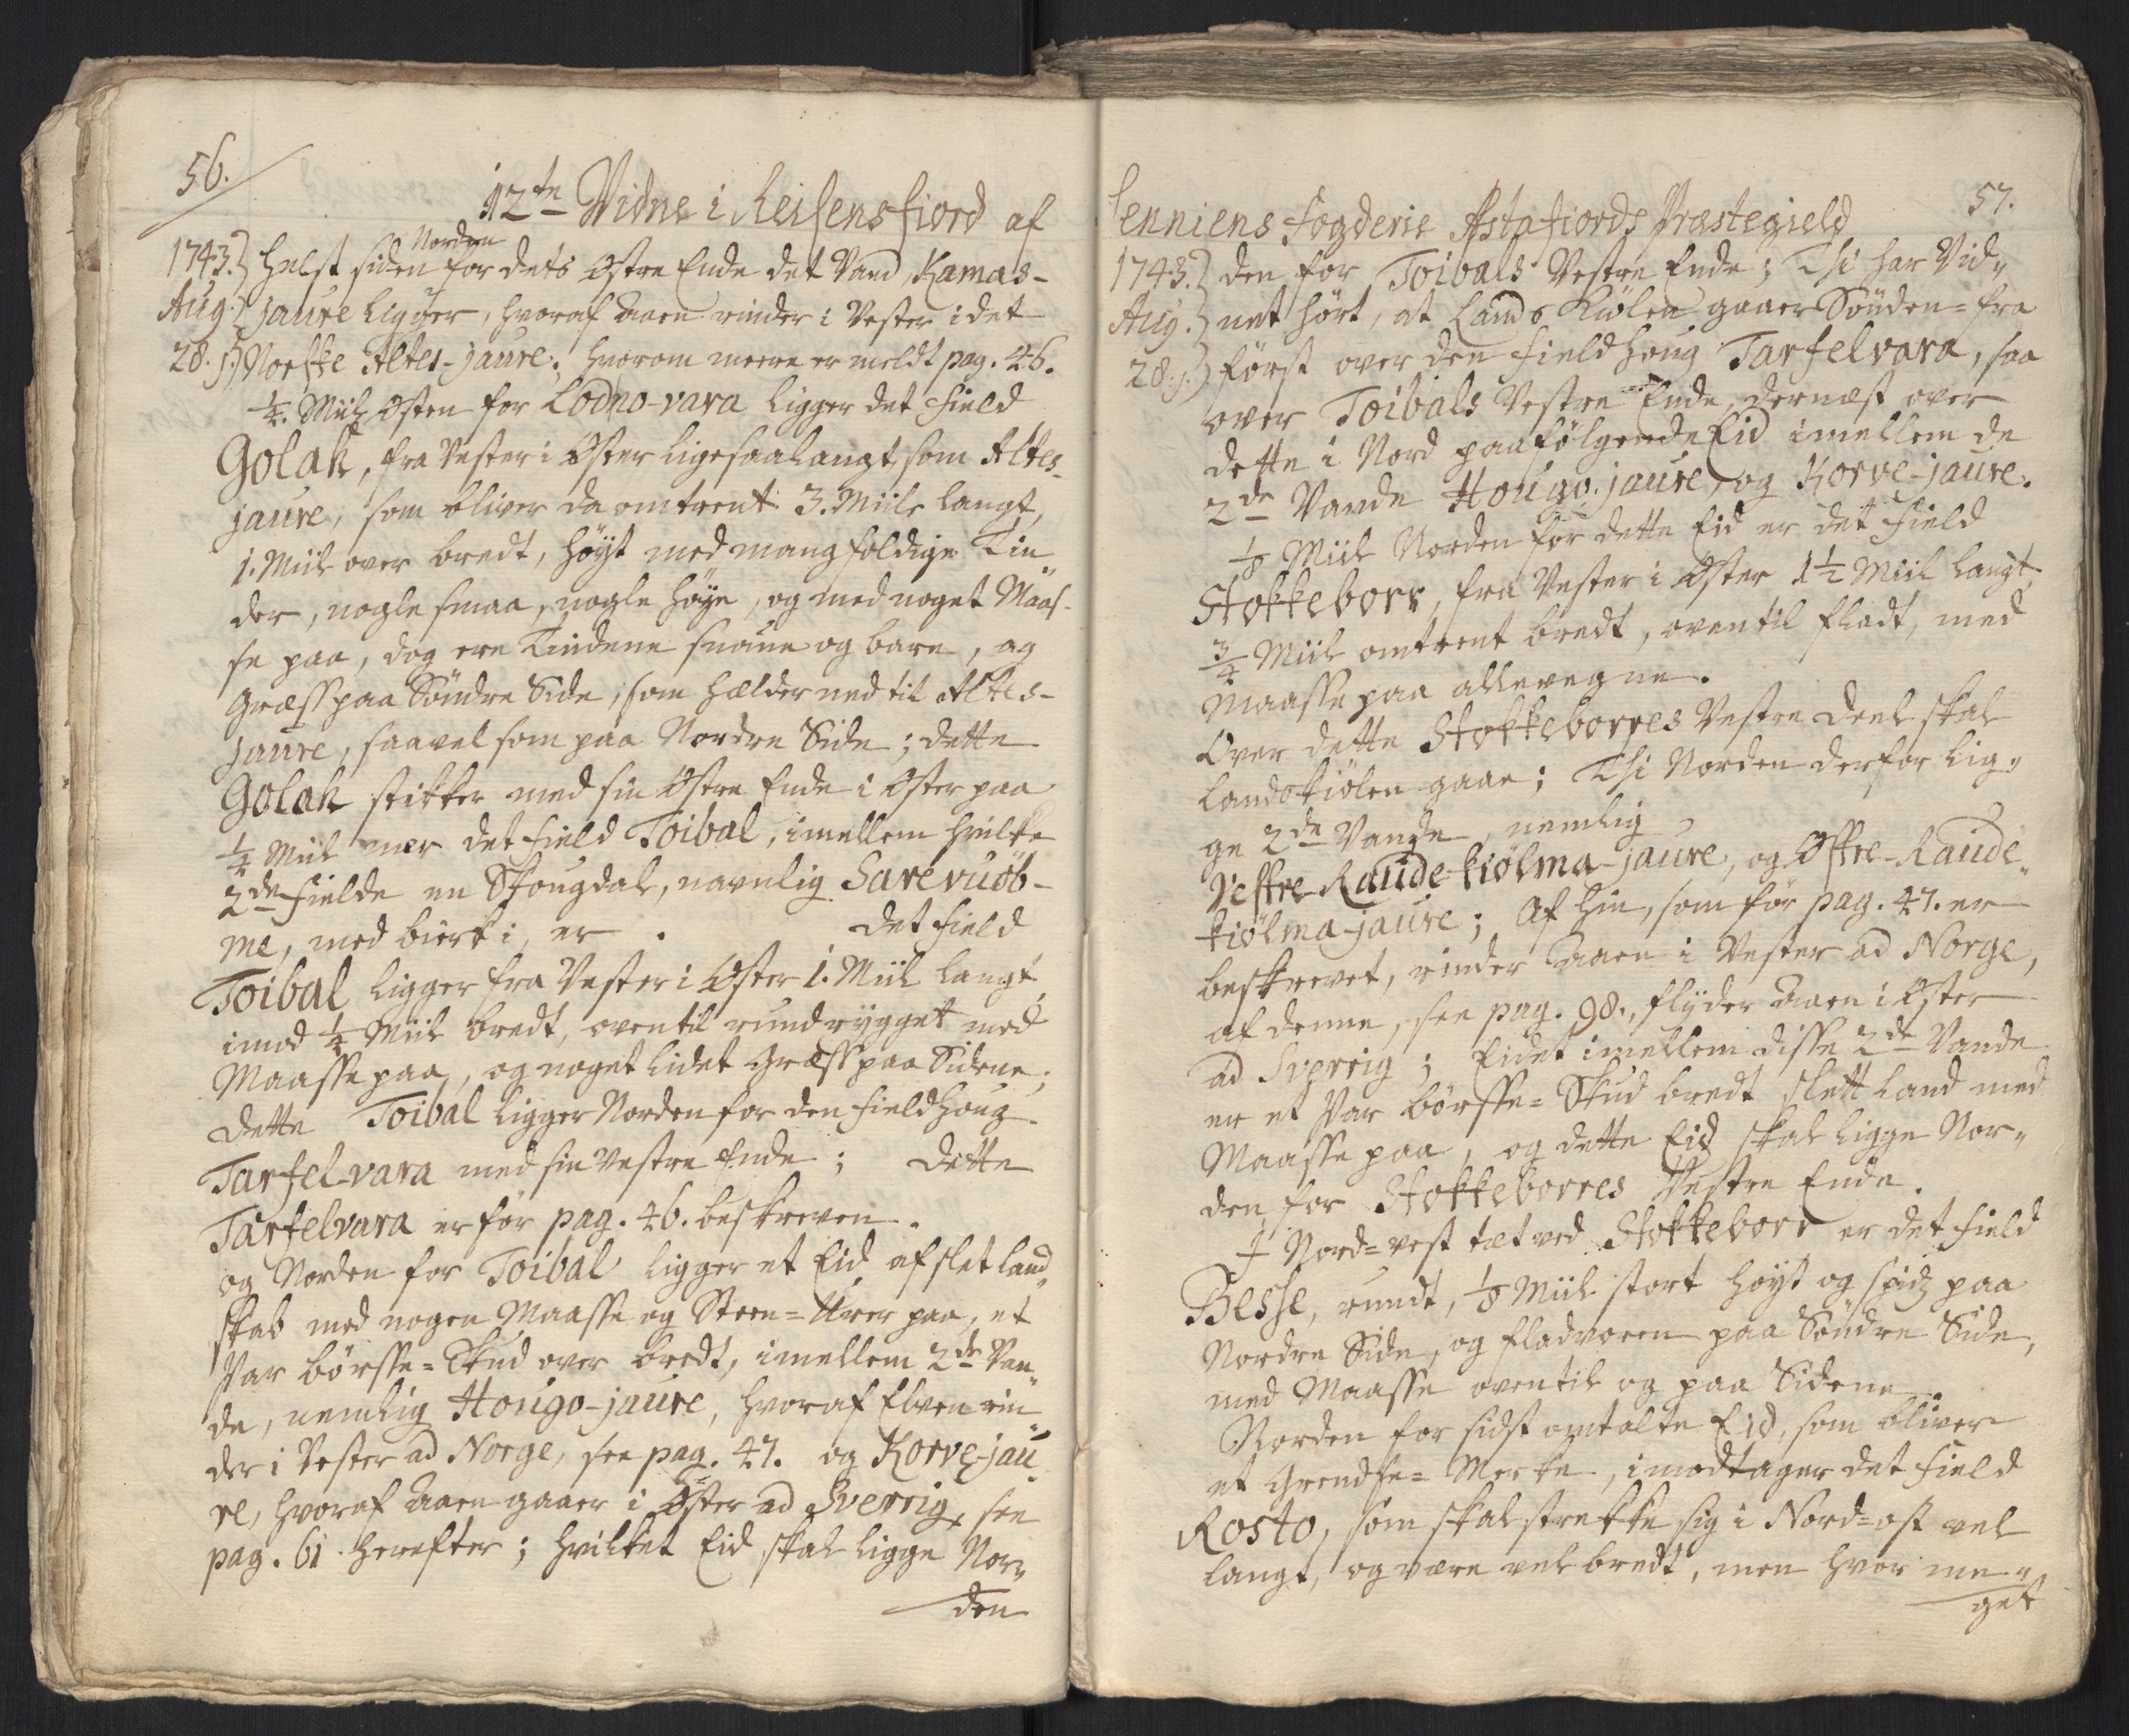 56.
12te Vidne i Reisensfiord af
Norden
1743.) helst siden for dets Østre Ende det Vand Kamas-
Aug.) jaure ligger, hvoraf Aaen rinder i Vester i det
28. f.) Norske Altes-jaure; hvorom meere er meldt pag. 46.
¼. Miil Østen for Lodno-vara ligger det Field
Golak, fra Vester i Øster ligesaalangt, som Altes-
jaure, som bliver da omtrent 3. Miile langt,
1. Miil over bredt, høyt med mangfoldige Tin„
der, nogle smaa, nogle høye, og med noget Maas-
se paa, dog ere Tindene snaue og bare, og
Græss paa Søndre Side, som hælder ned til Altes-
Jaure, saavel som paa Nordre Side; dette
Golak stikker med sin Østre Ende i Øster paa
¼ Miil nær det Field Toibal, imellem hvilke
2de Fielde en Skougdal, navnlig Sarevuöb-
me, med birk i, er. det Field
Toibal ligger fra Vester i Øster 1. Miil langt,
imod ¼ Miil bredt, oventil rundrygget med
Maasse paa, og noget lidet Græss paa Sidene;
dette Toibal ligger Norden for den Fieldhoug
Tarfel-vara med sin Vestre Ende; dette
Tarfelvara er før pag. 46. beskreven.
og Norden for Toibal ligger et Eid af slet land„
skab med nogen Maasse og Steen=Urer paa, et
Par børsse=Skud over bredt, imellem 2de Van„
de, nemlig Hougo-jaure, hvoraf Elven rin„
der i Vester ad Norge, see pag. 47. og Korve-jau„
re, hvoraf Aaen gaaer i Øster ad Sverrig, see
pag. 61 herefter; hvilket Eid skal ligge Nor„
den
57.
Senniens Fogderie Astafiords Præstegield
1743.) den for Toibals Vestre Ende; Thi har Vid„
Aug.) net hørt, at Lands Kiølen gaaer Sønden=fra
28. f.) først over den Fieldhoug Tarfelvara, saa
over Toibals Vestre Ende, dernæst over
dette i Nord paafølgende Eid imellem de
2de Vande Hougo-jaure, og Korve-jaure.
⅛ Miil Norden for dette Eid er det Field
Stokkeborr, fra Vester i Øster 1½ Miil langt,
¾ Miil omtrent bredt, oventil fladt, med
Maasse paa allevegne.
Over dette Stokkeborres Vestre Deel skal
Landskiølen gaae; Thi Norden derfor lig„
ge 2de Vande, nemlig
Vestre Raude-kiölma-jaure, og Østre-Raude„
kiölma-jaure; Af hin, som før pag. 47. er
beskrevet, rinder Aaen i Vester ad Norge,
af denne, see pag. 98., flyder Aaen i Øster
ad Sverrig; Eidet imellem disse 2de Vande
er et Par børsse=Skud bredt slett Land med
Maasse paa, og dette Eid skal ligge Nor„
den for Stokkeborres Vestre Ende.
I Nord=vest tæt ved Stokkeborr er det Field
Besse, rundt, ⅛ Miil stort høyt og spidz paa
Nordre Side, og fladvoren paa Søndre Side,
med Maasse oventil og paa Sidene.
Norden for sidst omtalte Eid, som bliver
et Grendse=Merke, imodtager det Field
Rosto, som skal strekke sig i Nord=ost vel
langt, og være vel bredt, men hvor me„
get